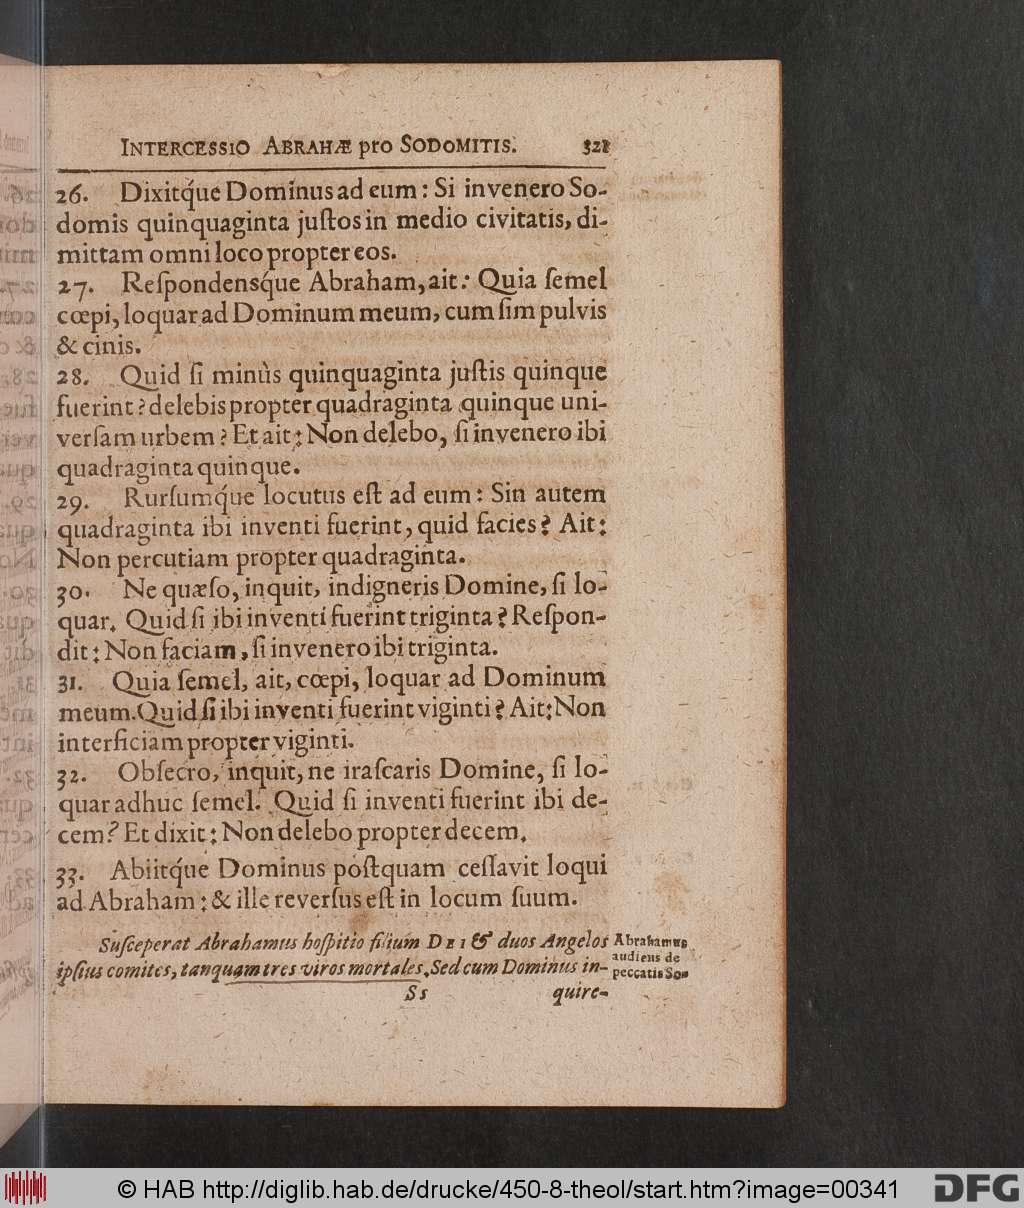 INTERCESSIO ABRAHÆ pro SODOMITIS. 321
26. Dixitq́ue Dominus ad eum : Si invenero So-
domis quinquaginta juſtos in medio civitatis, di-
mittam omni loco propter eos.
27. Reſpondensq́ue Abraham, ait: Quia ſemel
cœpi, loquar ad Dominum meum, cum ſim pulvis
& cinis.
28. Quid ſi minùs quinquaginta juſtis quinque
fuerint? delebis propter quadraginta quinque uni-
verſam urbem? Et ait: Non delebo, ſi invenero ibi
quadraginta quinque.
29. Rurſumq́ue locutus eſt ad eum: Sin autem
quadraginta ibi inventi fuerint, quid facies? Ait:
Non percutiam propter quadraginta.
30. Ne quæſo, inquit, indigneris Domine, ſi lo-
quar. Quid ſi ibi inventi fuerint triginta? Reſpon-
dit: Non faciam, ſi invenero ibi triginta.
31. Quia ſemel, ait, cœpi, loquar ad Dominum
meum. Quid ſi ibi inventi fuerint viginti? Ait: Non
interficiam propter viginti.
32. Obſecro, inquit, ne iraſcaris Domine, ſi lo-
quar adhuc ſemel. Quid ſi inventi fuerint ibi de-
cem? Et dixit: Non delebo propter decem.
33. Abiitq́ue Dominus poſtquam ceſſavit loqui
ad Abraham: & ille reverſus eſt in locum ſuum.
Suſceperat Abrahamus hoſpitio filium DEI & duos Angelos
ipſius comites, tanquam tres viros mortales. Sed cum Dominus in-
Abrahamus
audiens de
peccatis So-
Ss quire-
© HAB http://diglib.hab.de/drucke/450-8-theol/start.htm?image=00341
DFG